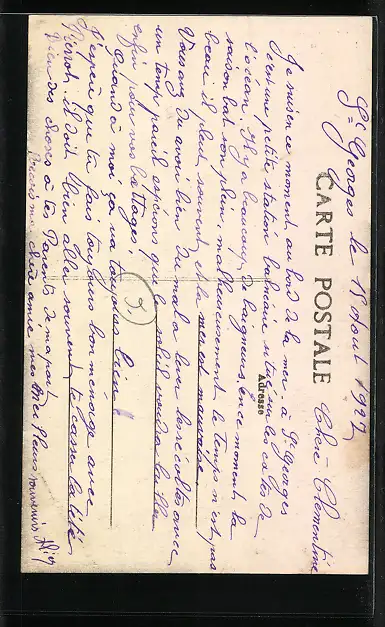 St Georges le 1er Aout 1922
CARTE POSTALE
Adresse
Chère Clémentine
Je suis en ce moment au bord de la mer à St Georges
c'est une petite station balnéaire située sur les côtes de
l'océan. Il y a beaucoup de baigneurs en ce moment la
saison bat son plein, malheureusement le temps n'est pas
beau il pleut souvent et la mer est mauvaise
Vous avez du avoir bien du mal à lever les récoltes avec
un temps pareil espérons que le soleil voudra briller
enfin pour vos battages.
Quand à moi, ça va toujours bien!
J'espère que tu fais toujours bon ménage avec
il doit bien aller souvent te casser la tête
Bien des choses à tes Parents de ma part
Reçois ma chère amie mes meilleurs souvenirs